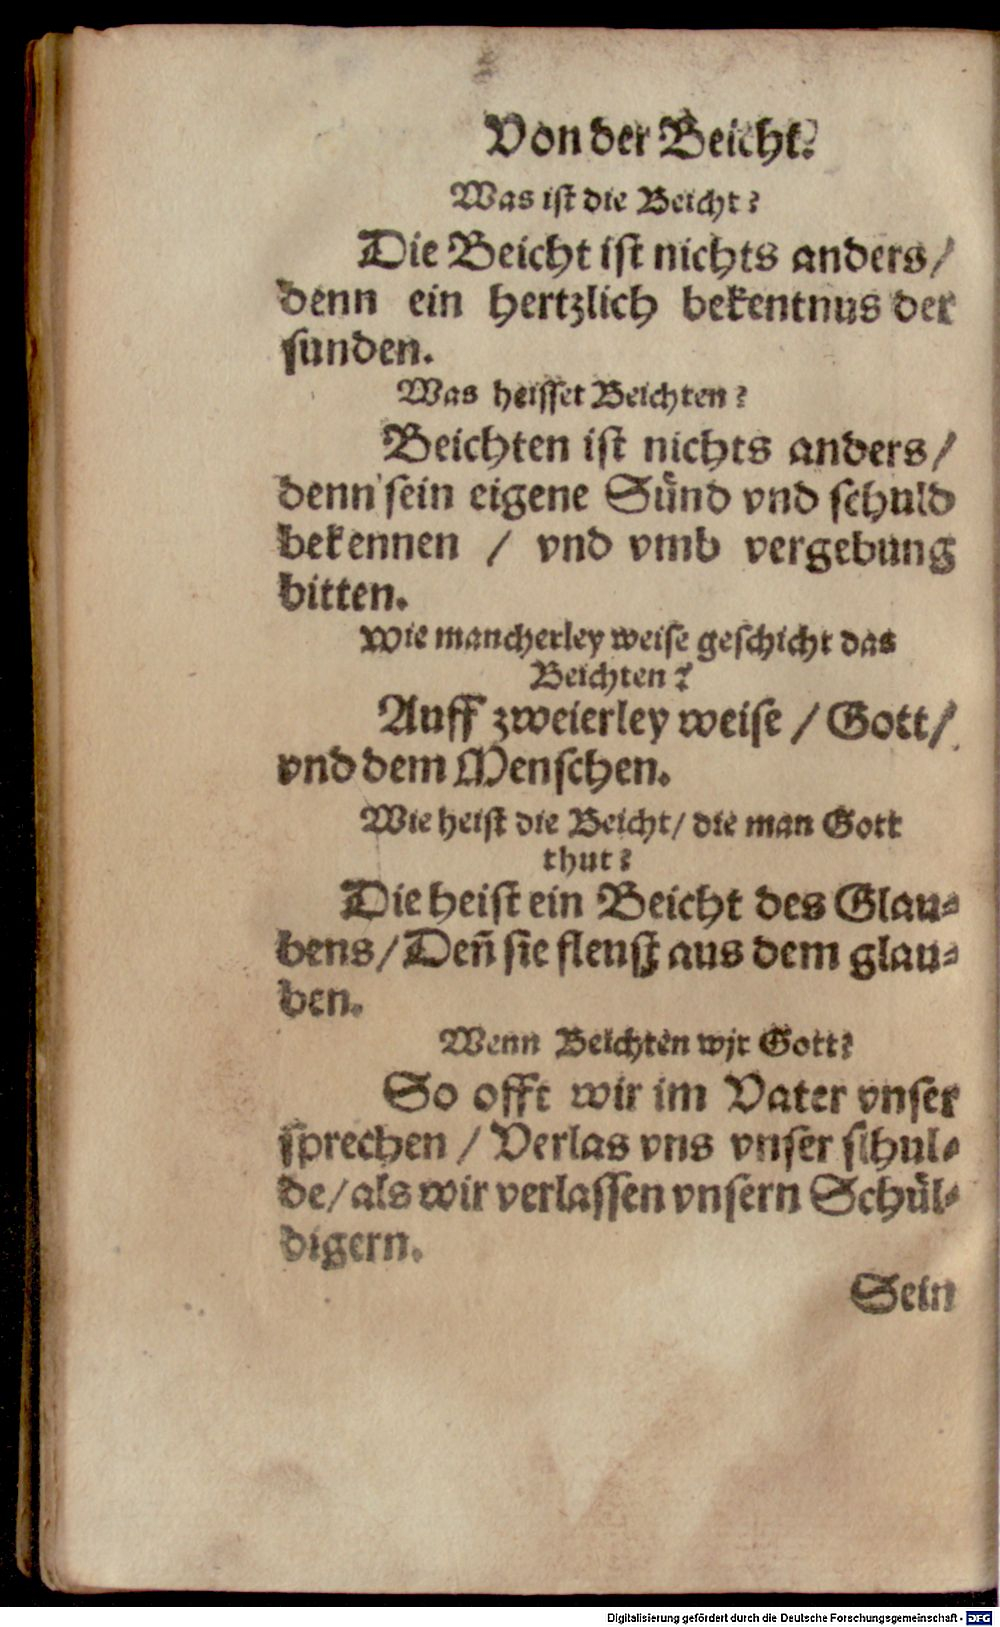 Von der Beicht.
Was iſt die Beicht?
Die Beicht iſt nichts anders/
denn ein hertzlich bekentnus der
ſunden.
Was heiſſet Beichten?
Beichten iſt nichts anders/
denn ſein eigene Sünd vnd ſchuld
bekennen / vnd vmb vergebung
bitten.
Wie mancherley weiſe geſchicht das
Beichten?
Auff zweierley weiſe / Gott/
vnd dem Menſchen.
Wie heiſt die Beicht/ die man Gott
thut?
Die heiſt ein Beicht des Glau-
bens/ Deñ ſie fleuſſz aus dem glau-
ben.
Wenn Beichten wjr Gott?
So offt wir im Vater vnſer
ſprechen / Verlas vns vnſer ſchul-
de/ als wir verlaſſen vnſern Schül-
digern.
Sein
Digitalisierung gefördert durch die Deutsche Forschungsgemeinschaft - DFG